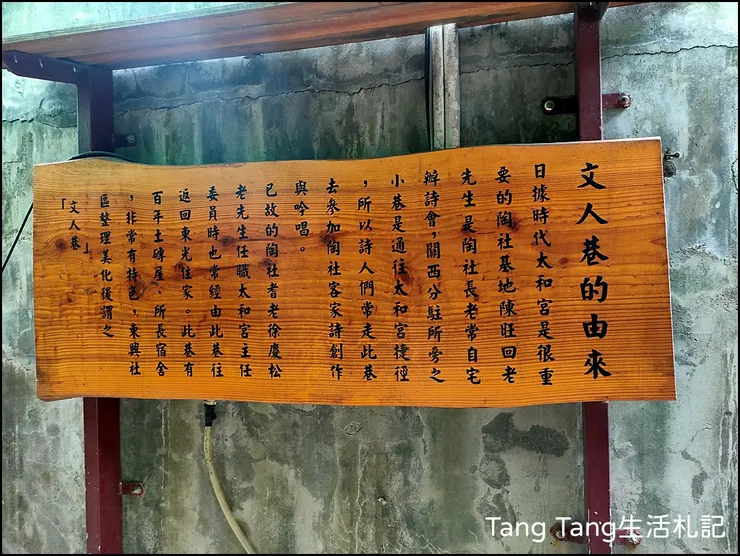 文人巷的由來
日據時代太和宮是很重
要的陶社基地陳旺回老
先生是陶社長老常自宅
辦詩會，關西分駐所旁之
小巷是通往太和宮捷徑
，所以詩人們常走此巷
去參加陶社客家詩創作
與吟唱。
已故的陶社耆老徐慶松
老先生任職太和宮主任
委員時也常經由此巷往
返回東光住家。此巷有
百年土磚屋、所長宿舍
，非常有特色，東興社
區整理美化後謂之
「文人巷」
Tang Tang生活札記